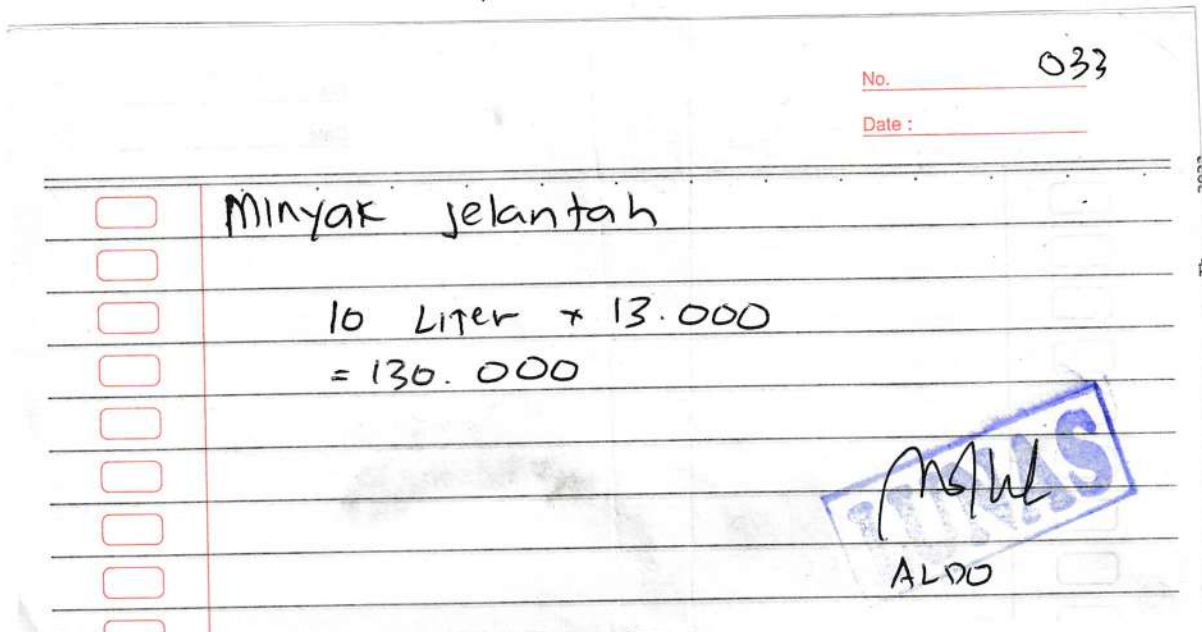 No. 033
Date :
Minyak jelantah
10 Liter × 13.000
= 130.000
LUNAS
ALDO